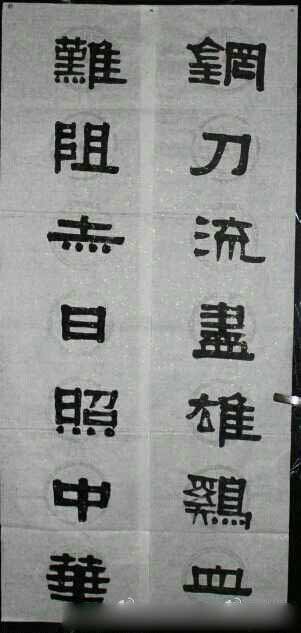 鋼刀流盡雄鷄血
難阻赤日照中華